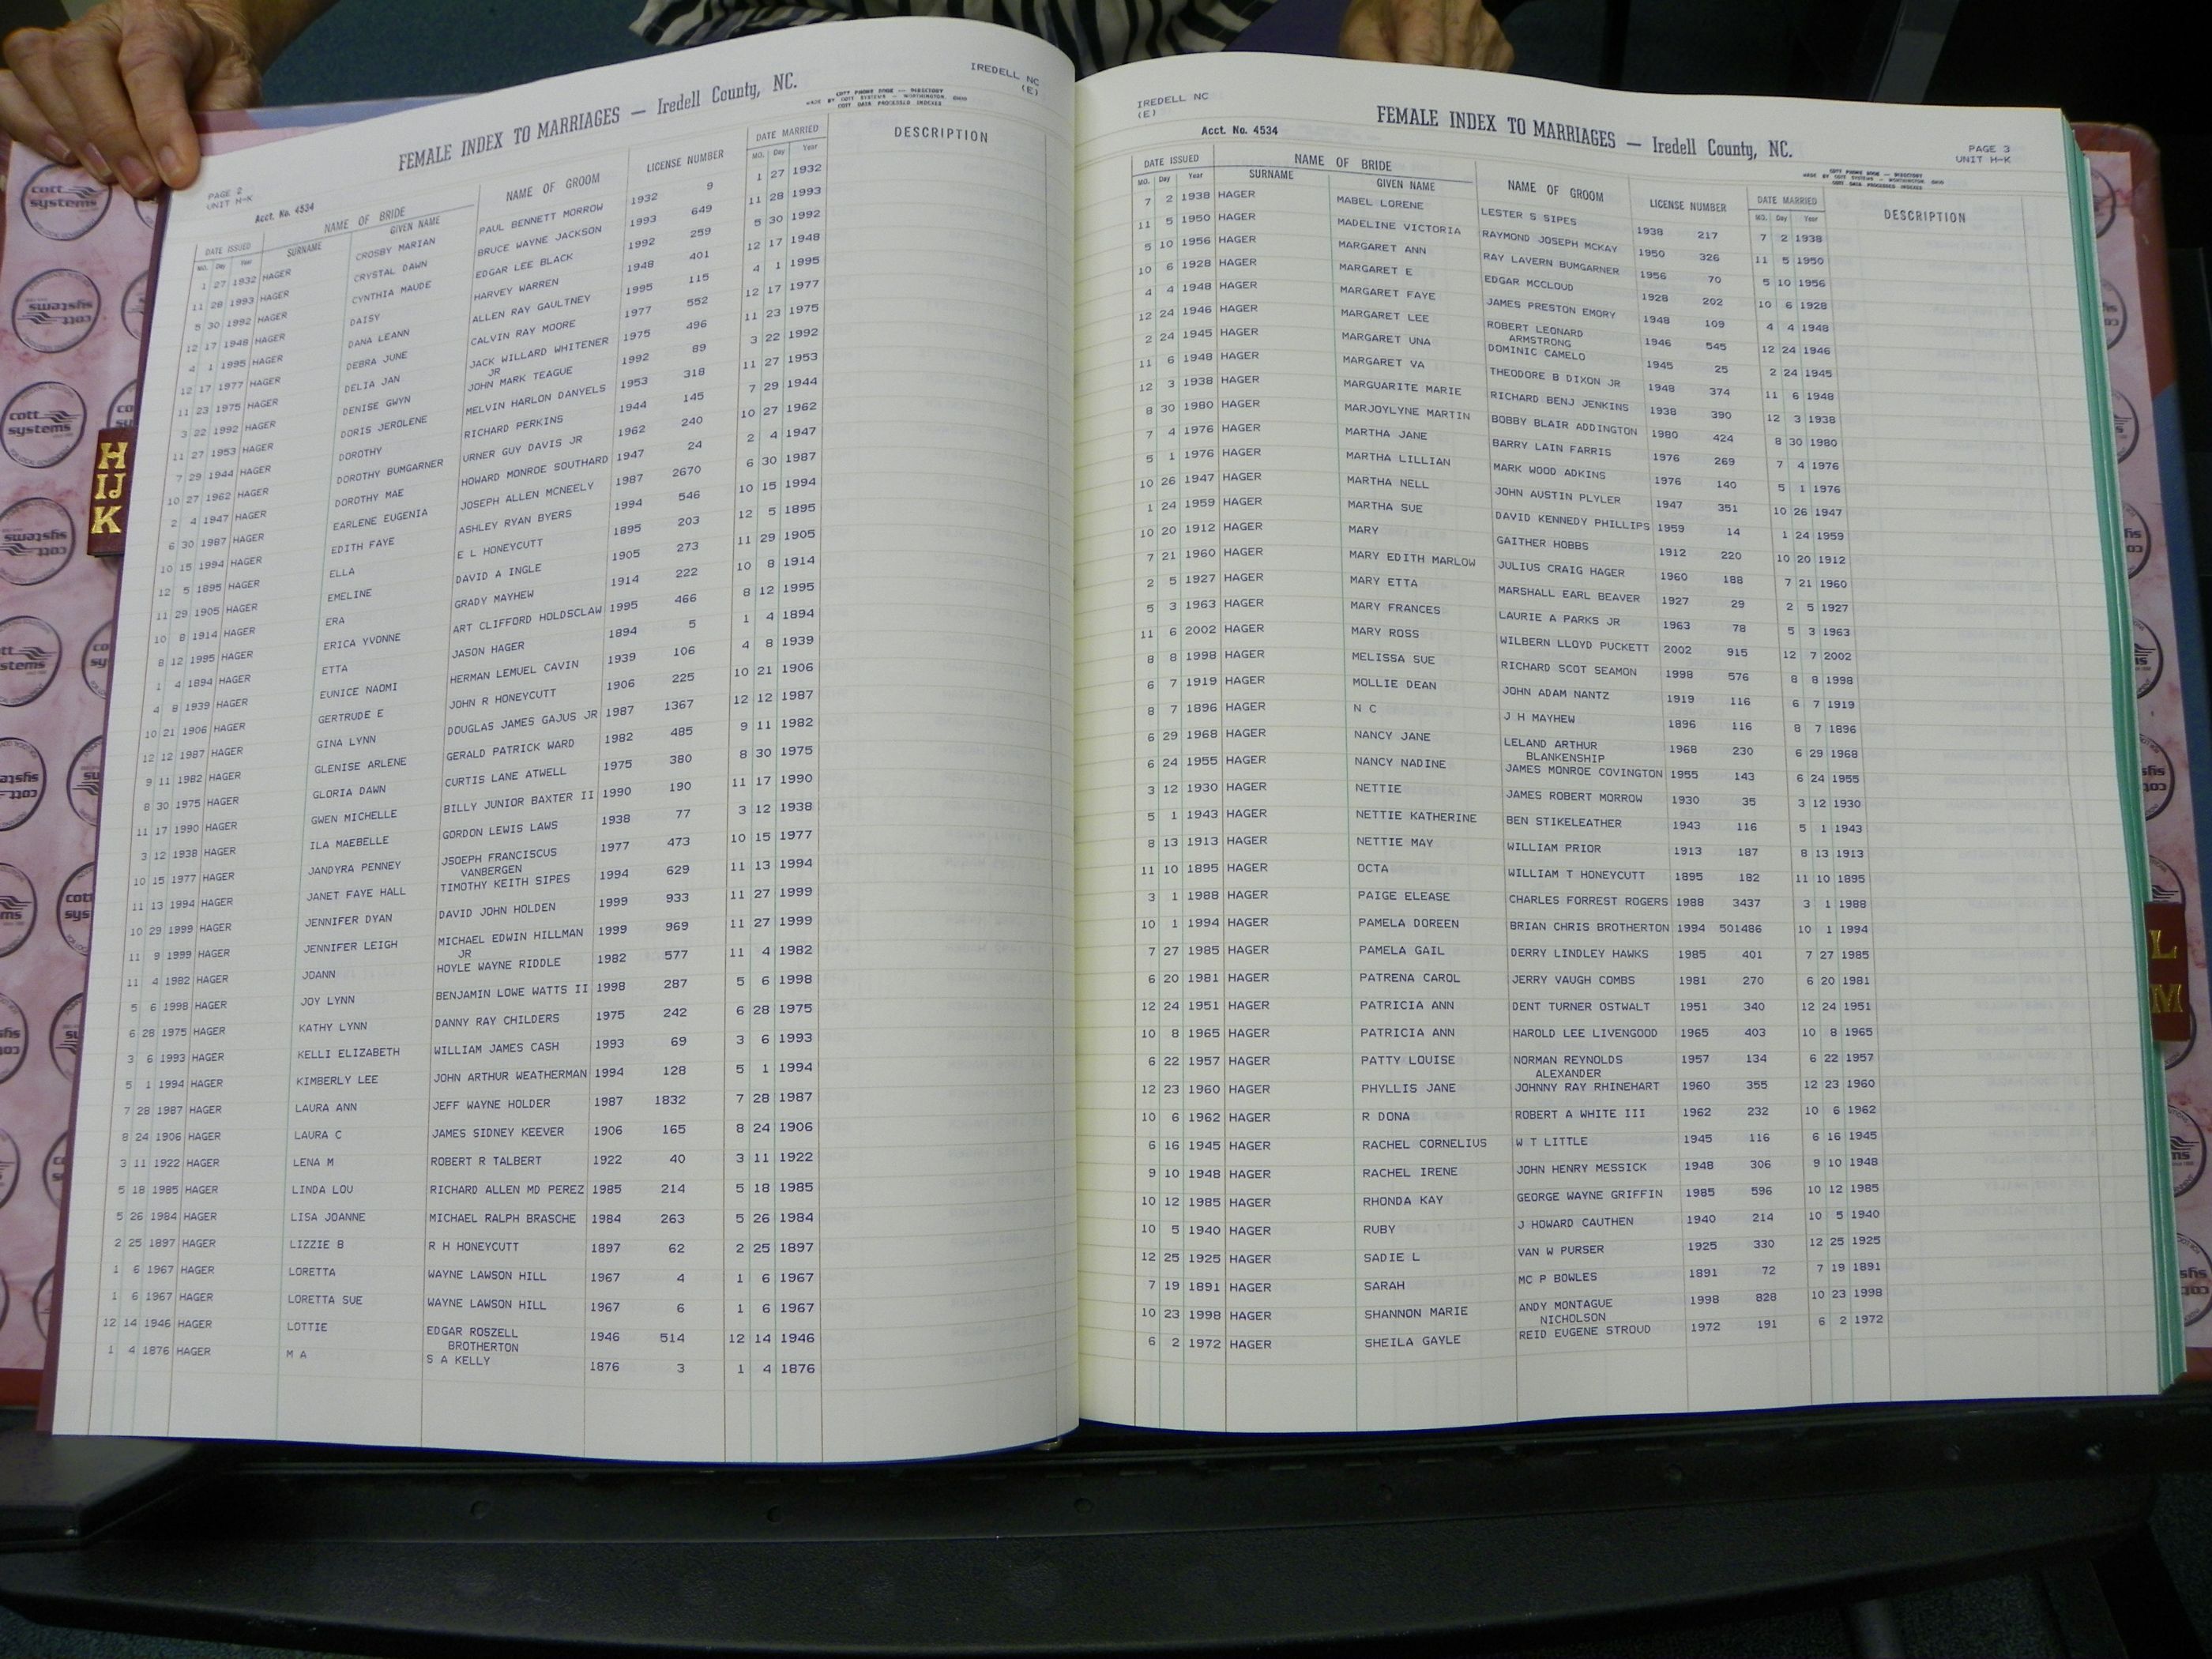 IREDELL NC
(E)
FEMALE INDEX TO MARRIAGES — Iredell County, NC.
COTT PHONE EDGE — DIRECTORY
MADE BY COTT SYSTEMS — WORTHINGTON, OHIO
COTT DATA PROCESSED INDEXES
PAGE 2
UNIT H-K
Acct. No. 4534
DATE ISSUED NAME OF BRIDE NAME OF GROOM LICENSE NUMBER DATE MARRIED DESCRIPTION
MO. Day Year SURNAME GIVEN NAME MO. Day Year
1 27 1932 HAGER CROSBY MARIAN PAUL BENNETT MORROW 1932 9 1 27 1932
11 28 1993 HAGER CRYSTAL DAWN BRUCE WAYNE JACKSON 1993 649 11 28 1993
5 30 1992 HAGER CYNTHIA MAUDE EDGAR LEE BLACK 1992 259 5 30 1992
12 17 1948 HAGER DAISY HARVEY WARREN 1948 401 12 17 1948
4 1 1995 HAGER DANA LEANN ALLEN RAY GAULTNEY 1995 115 4 1 1995
12 17 1977 HAGER DEBRA JUNE CALVIN RAY MOORE 1977 552 12 17 1977
11 23 1975 HAGER DELIA JAN JACK WILLARD WHITENER 1975 496 11 23 1975
JR
3 22 1992 HAGER DENISE GWYN JOHN MARK TEAGUE 1992 89 3 22 1992
11 27 1953 HAGER DORIS JEROLENE MELVIN HARLON DANYELS 1953 318 11 27 1953
7 29 1944 HAGER DOROTHY RICHARD PERKINS 1944 145 7 29 1944
10 27 1962 HAGER DOROTHY BUMGARNER URNER GUY DAVIS JR 1962 240 10 27 1962
2 4 1947 HAGER DOROTHY MAE HOWARD MONROE SOUTHARD 1947 24 2 4 1947
6 30 1987 HAGER EARLENE EUGENIA JOSEPH ALLEN MCNEELY 1987 2670 6 30 1987
10 15 1994 HAGER EDITH FAYE ASHLEY RYAN BYERS 1994 546 10 15 1994
12 5 1895 HAGER ELLA E L HONEYCUTT 1895 203 12 5 1895
11 29 1905 HAGER EMELINE DAVID A INGLE 1905 273 11 29 1905
10 8 1914 HAGER ERA GRADY MAYHEW 1914 222 10 8 1914
8 12 1995 HAGER ERICA YVONNE ART CLIFFORD HOLDSCLAW 1995 466 8 12 1995
1 4 1894 HAGER ETTA JASON HAGER 1894 5 1 4 1894
4 8 1939 HAGER EUNICE NAOMI HERMAN LEMUEL CAVIN 1939 106 4 8 1939
10 21 1906 HAGER GERTRUDE E JOHN R HONEYCUTT 1906 225 10 21 1906
12 12 1987 HAGER GINA LYNN DOUGLAS JAMES GAJUS JR 1987 1367 12 12 1987
9 11 1982 HAGER GLENISE ARLENE GERALD PATRICK WARD 1982 485 9 11 1982
8 30 1975 HAGER GLORIA DAWN CURTIS LANE ATWELL 1975 380 8 30 1975
11 17 1990 HAGER GWEN MICHELLE BILLY JUNIOR BAXTER II 1990 190 11 17 1990
3 12 1938 HAGER ILA MAEBELLE GORDON LEWIS LAWS 1938 77 3 12 1938
10 15 1977 HAGER JANDYRA PENNEY JSOEPH FRANCISCUS 1977 473 10 15 1977
VANBERGEN
11 13 1994 HAGER JANET FAYE HALL TIMOTHY KEITH SIPES 1994 629 11 13 1994
10 29 1999 HAGER JENNIFER DYAN DAVID JOHN HOLDEN 1999 933 11 27 1999
11 9 1999 HAGER JENNIFER LEIGH MICHAEL EDWIN HILLMAN 1999 969 11 27 1999
JR
11 4 1982 HAGER JOANN HOYLE WAYNE RIDDLE 1982 577 11 4 1982
5 6 1998 HAGER JOY LYNN BENJAMIN LOWE WATTS II 1998 287 5 6 1998
6 28 1975 HAGER KATHY LYNN DANNY RAY CHILDERS 1975 242 6 28 1975
3 6 1993 HAGER KELLI ELIZABETH WILLIAM JAMES CASH 1993 69 3 6 1993
5 1 1994 HAGER KIMBERLY LEE JOHN ARTHUR WEATHERMAN 1994 128 5 1 1994
7 28 1987 HAGER LAURA ANN JEFF WAYNE HOLDER 1987 1832 7 28 1987
8 24 1906 HAGER LAURA C JAMES SIDNEY KEEVER 1906 165 8 24 1906
3 11 1922 HAGER LENA M ROBERT R TALBERT 1922 40 3 11 1922
5 18 1985 HAGER LINDA LOU RICHARD ALLEN MD PEREZ 1985 214 5 18 1985
5 26 1984 HAGER LISA JOANNE MICHAEL RALPH BRASCHE 1984 263 5 26 1984
2 25 1897 HAGER LIZZIE B R H HONEYCUTT 1897 62 2 25 1897
1 6 1967 HAGER LORETTA WAYNE LAWSON HILL 1967 4 1 6 1967
1 6 1967 HAGER LORETTA SUE WAYNE LAWSON HILL 1967 6 1 6 1967
12 14 1946 HAGER LOTTIE EDGAR ROSZELL 1946 514 12 14 1946
BROTHERTON
1 4 1876 HAGER M A S A KELLY 1876 3 1 4 1876
IREDELL NC
(E)
FEMALE INDEX TO MARRIAGES — Iredell County, NC.
Acct. No. 4534
PAGE 3
UNIT H-K
COTT PHONE EDGE — DIRECTORY
MADE BY COTT SYSTEMS — WORTHINGTON, OHIO
COTT DATA PROCESSED INDEXES
DATE ISSUED NAME OF BRIDE NAME OF GROOM LICENSE NUMBER DATE MARRIED DESCRIPTION
MO. Day Year SURNAME GIVEN NAME MO. Day Year
7 2 1938 HAGER MABEL LORENE LESTER S SIPES 1938 217 7 2 1938
11 5 1950 HAGER MADELINE VICTORIA RAYMOND JOSEPH MCKAY 1950 326 11 5 1950
5 10 1956 HAGER MARGARET ANN RAY LAVERN BUMGARNER 1956 70 5 10 1956
10 6 1928 HAGER MARGARET E EDGAR MCCLOUD 1928 202 10 6 1928
4 4 1948 HAGER MARGARET FAYE JAMES PRESTON EMORY 1948 109 4 4 1948
12 24 1946 HAGER MARGARET LEE ROBERT LEONARD 1946 545 12 24 1946
ARMSTRONG
2 24 1945 HAGER MARGARET UNA DOMINIC CAMELO 1945 25 2 24 1945
11 6 1948 HAGER MARGARET VA THEODORE B DIXON JR 1948 374 11 6 1948
12 3 1938 HAGER MARGUARITE MARIE RICHARD BENJ JENKINS 1938 390 12 3 1938
8 30 1980 HAGER MARJOYLYNE MARTIN BOBBY BLAIR ADDINGTON 1980 424 8 30 1980
7 4 1976 HAGER MARTHA JANE BARRY LAIN FARRIS 1976 269 7 4 1976
5 1 1976 HAGER MARTHA LILLIAN MARK WOOD ADKINS 1976 140 5 1 1976
10 26 1947 HAGER MARTHA NELL JOHN AUSTIN PLYLER 1947 351 10 26 1947
1 24 1959 HAGER MARTHA SUE DAVID KENNEDY PHILLIPS 1959 14 1 24 1959
10 20 1912 HAGER MARY GAITHER HOBBS 1912 220 10 20 1912
7 21 1960 HAGER MARY EDITH MARLOW JULIUS CRAIG HAGER 1960 188 7 21 1960
2 5 1927 HAGER MARY ETTA MARSHALL EARL BEAVER 1927 29 2 5 1927
5 3 1963 HAGER MARY FRANCES LAURIE A PARKS JR 1963 78 5 3 1963
11 6 2002 HAGER MARY ROSS WILBERN LLOYD PUCKETT 2002 915 12 7 2002
8 8 1998 HAGER MELISSA SUE RICHARD SCOT SEAMON 1998 576 8 8 1998
6 7 1919 HAGER MOLLIE DEAN JOHN ADAM NANTZ 1919 116 6 7 1919
8 7 1896 HAGER N C J H MAYHEW 1896 116 8 7 1896
6 29 1968 HAGER NANCY JANE LELAND ARTHUR 1968 230 6 29 1968
BLANKENSHIP
6 24 1955 HAGER NANCY NADINE JAMES MONROE COVINGTON 1955 143 6 24 1955
3 12 1930 HAGER NETTIE JAMES ROBERT MORROW 1930 35 3 12 1930
5 1 1943 HAGER NETTIE KATHERINE BEN STIKELEATHER 1943 116 5 1 1943
8 13 1913 HAGER NETTIE MAY WILLIAM PRIOR 1913 187 8 13 1913
11 10 1895 HAGER OCTA WILLIAM T HONEYCUTT 1895 182 11 10 1895
3 1 1988 HAGER PAIGE ELEASE CHARLES FORREST ROGERS 1988 3437 3 1 1988
10 1 1994 HAGER PAMELA DOREEN BRIAN CHRIS BROTHERTON 1994 501486 10 1 1994
7 27 1985 HAGER PAMELA GAIL DERRY LINDLEY HAWKS 1985 401 7 27 1985
6 20 1981 HAGER PATRENA CAROL JERRY VAUGH COMBS 1981 270 6 20 1981
12 24 1951 HAGER PATRICIA ANN DENT TURNER OSTWALT 1951 340 12 24 1951
10 8 1965 HAGER PATRICIA ANN HAROLD LEE LIVENGOOD 1965 403 10 8 1965
6 22 1957 HAGER PATTY LOUISE NORMAN REYNOLDS 1957 134 6 22 1957
ALEXANDER
12 23 1960 HAGER PHYLLIS JANE JOHNNY RAY RHINEHART 1960 355 12 23 1960
10 6 1962 HAGER R DONA ROBERT A WHITE III 1962 232 10 6 1962
6 16 1945 HAGER RACHEL CORNELIUS W T LITTLE 1945 116 6 16 1945
9 10 1948 HAGER RACHEL IRENE JOHN HENRY MESSICK 1948 306 9 10 1948
10 12 1985 HAGER RHONDA KAY GEORGE WAYNE GRIFFIN 1985 596 10 12 1985
10 5 1940 HAGER RUBY J HOWARD CAUTHEN 1940 214 10 5 1940
12 25 1925 HAGER SADIE L VAN W PURSER 1925 330 12 25 1925
7 19 1891 HAGER SARAH MC P BOWLES 1891 72 7 19 1891
10 23 1998 HAGER SHANNON MARIE ANDY MONTAGUE 1998 828 10 23 1998
NICHOLSON
6 2 1972 HAGER SHEILA GAYLE REID EUGENE STROUD 1972 191 6 2 1972
H
IJ
K
L
M
cott
systems